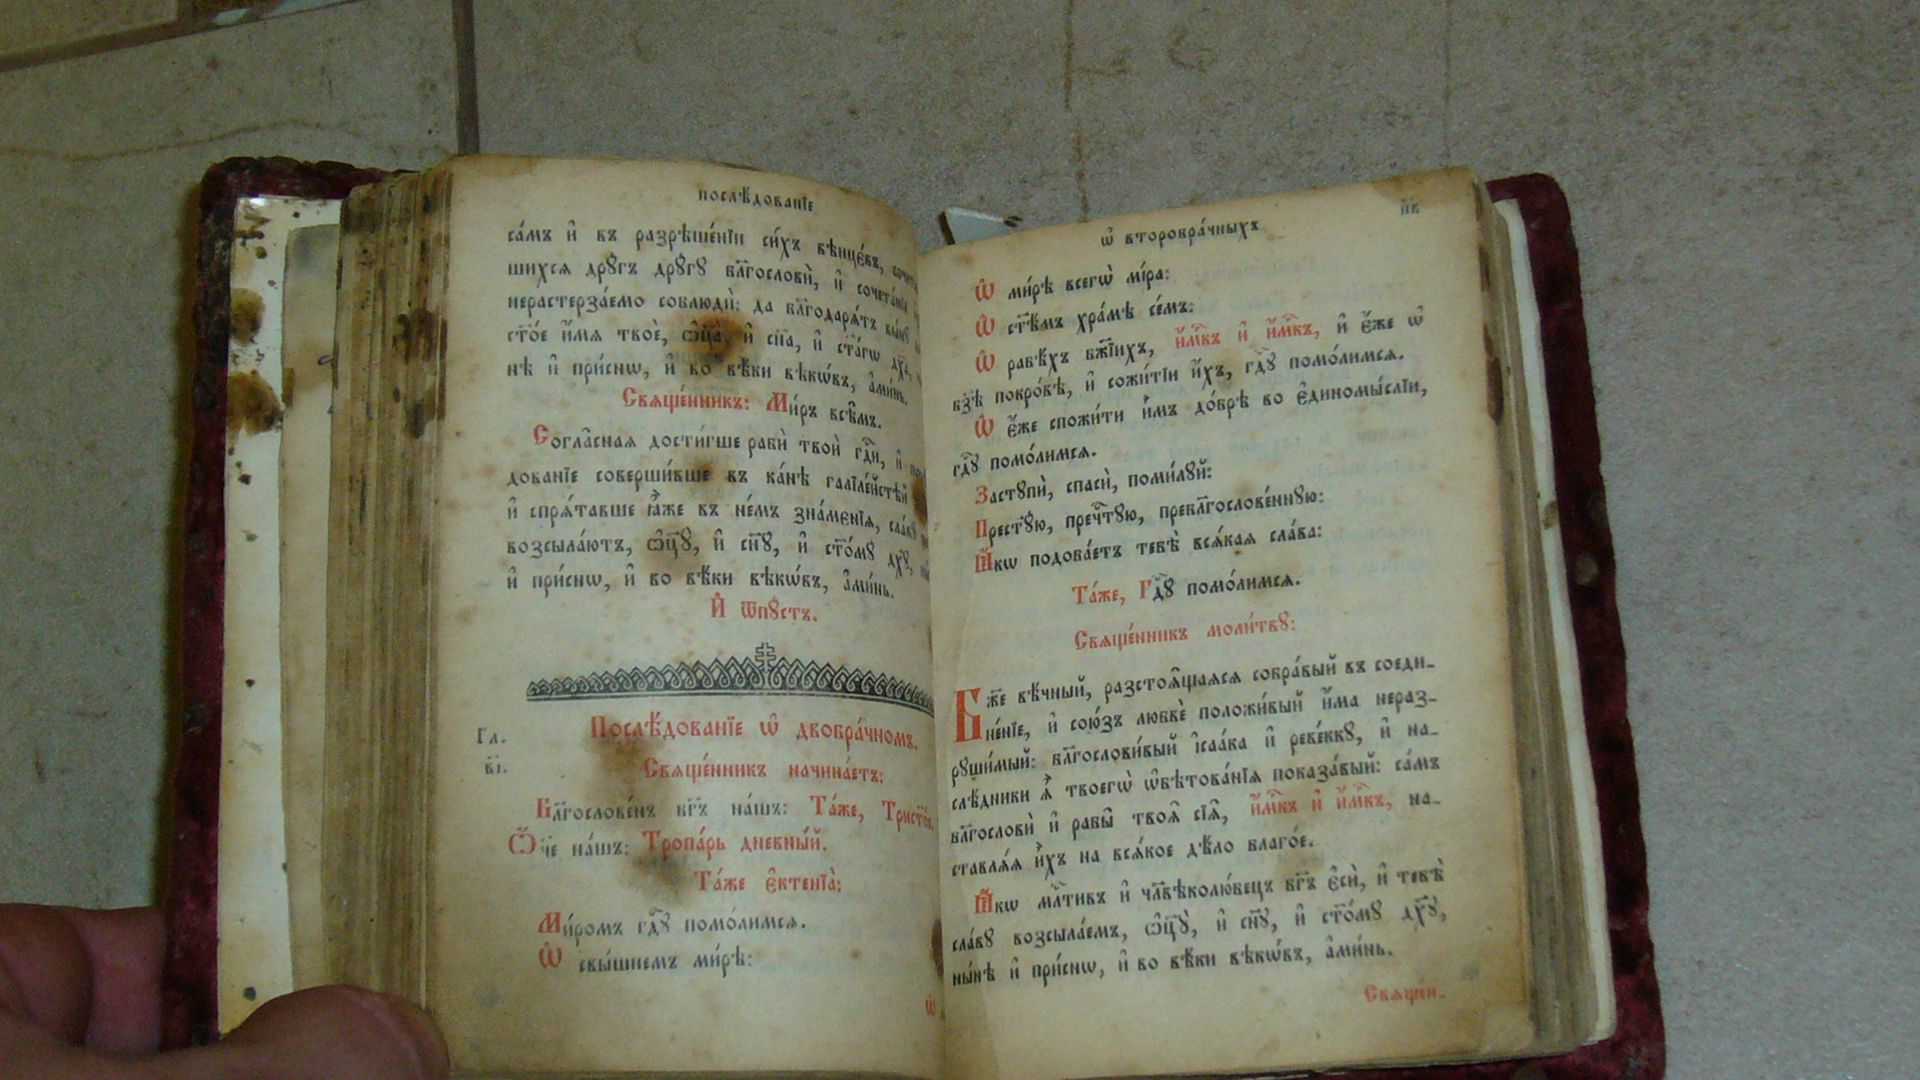 послѣ́дованїе
са́мъ и҆ въ разрѣше́нїи си́хъ вѣнце́въ,
шихся дрꙋ́гъ дрꙋ́гꙋ блгⷭ҇ослови̑, и҆ сочета́нїе
нерастерза́емо соблюди̑: да блгⷣ҇аря́тъ
ст҃о́е и҆́мя твоѐ, ѻ҆ц҃а̀, и҆ сн҃а, и҆ ст҃а́гѡ дх҃а,
нѣ и҆ при́снѡ, и҆ во вѣ́ки вѣкѡ́въ, а҆ми́нь.
Свяще́нникъ: Ми́ръ всѣ̑мъ.
Согла́сная дости́гше раби̑ твоѝ гдⷭ҇и, и҆
дованїе соверши́вше въ ка́нѣ галїле́йстѣй
и҆ спря́тавше ꙗ҆́же въ не́мъ зна́менїя, сла́вꙋ
возсыла́ютъ, ѻ҆ц҃ꙋ̀, и҆ сн҃ꙋ, и҆ ст҃о́мꙋ дх҃ꙋ,
и҆ при́снѡ, и҆ во вѣ́ки вѣкѡ́въ, а҆ми́нь.
И҆ ѿпꙋ́стъ.
Гл.
в҃і.
Послѣ́дованїе ѡ҆ двобра́чномъ.
Свяще́нникъ начина́етъ:
Блгⷭ҇ослове́нъ бг҃ъ на́шъ: Та́же, Трист҃о́е.
Ѻ҆́ч҃е на́шъ: Тропа́рь дневны́й.
Та́же є҆ктенїа̀:
Ми́ромъ гдⷭ҇ꙋ помо́лимся.
Ѡ҆ свы́шнемъ ми́рѣ:
Ѡ҆
ѡ҆ второбра́чныхъ
н҃в
Ѡ҆ ми́рѣ всегѡ̀ мі́ра:
Ѡ҆ ст҃ѣ́мъ хра́мѣ се́мъ:
Ѡ҆ рабѣ́хъ бж҃їихъ, и҆м҃къ и҆ и҆м҃къ, и҆ є҆́же ѡ҆
бз҃ѣ покро́вѣ, и҆ сожи́тїи и҆́хъ, гдⷭ҇ꙋ помо́лимся.
Ѡ҆ є҆́же спожи́ти и҆̀мъ до́брѣ во є҆диномы́слїи,
гдⷭ҇ꙋ помо́лимся.
Застꙋпѝ, спасѝ, поми́лꙋй:
Прест҃ꙋ́ю, пречⷭ҇тꙋю, преблгⷭ҇ослове́ннꙋю:
Ꙗ҆́кѡ подоба́етъ тебѣ̀ вся́кая сла́ва:
Та́же, Гдⷭ҇ꙋ помо́лимся.
Свяще́нникъ моли́твꙋ:
Бж҃е вѣ́чный, разстоя̑щаяся собра́вый въ соеди-
не́нїе, и҆ сою́зъ любвѐ положи́вый и҆́ма нераз-
рꙋши́мый: блгⷭ҇ослови́вый і҆саа́ка и҆ реве́ккꙋ, и҆ на-
слѣ́дники ꙗ҆̀ твоегѡ̀ ѡ҆бѣтова́нїя показа́вый: са́мъ
блгⷭ҇ословѝ и҆ рабы̑ твоя̑ сїя̑, и҆м҃къ и҆ и҆м҃къ, на-
ставля́я и҆̀хъ на вся́кое дѣ́ло благо́е.
Ꙗ҆́кѡ млⷭ҇тивъ и҆ чл҃вѣколю́бецъ бг҃ъ є҆сѝ, и҆ тебѣ̀
сла́вꙋ возсыла́емъ, ѻ҆ц҃ꙋ̀, и҆ сн҃ꙋ, и҆ ст҃о́мꙋ дх҃ꙋ,
ны́нѣ и҆ при́снѡ, и҆ во вѣ́ки вѣкѡ́въ, а҆ми́нь.
Свяще́н-